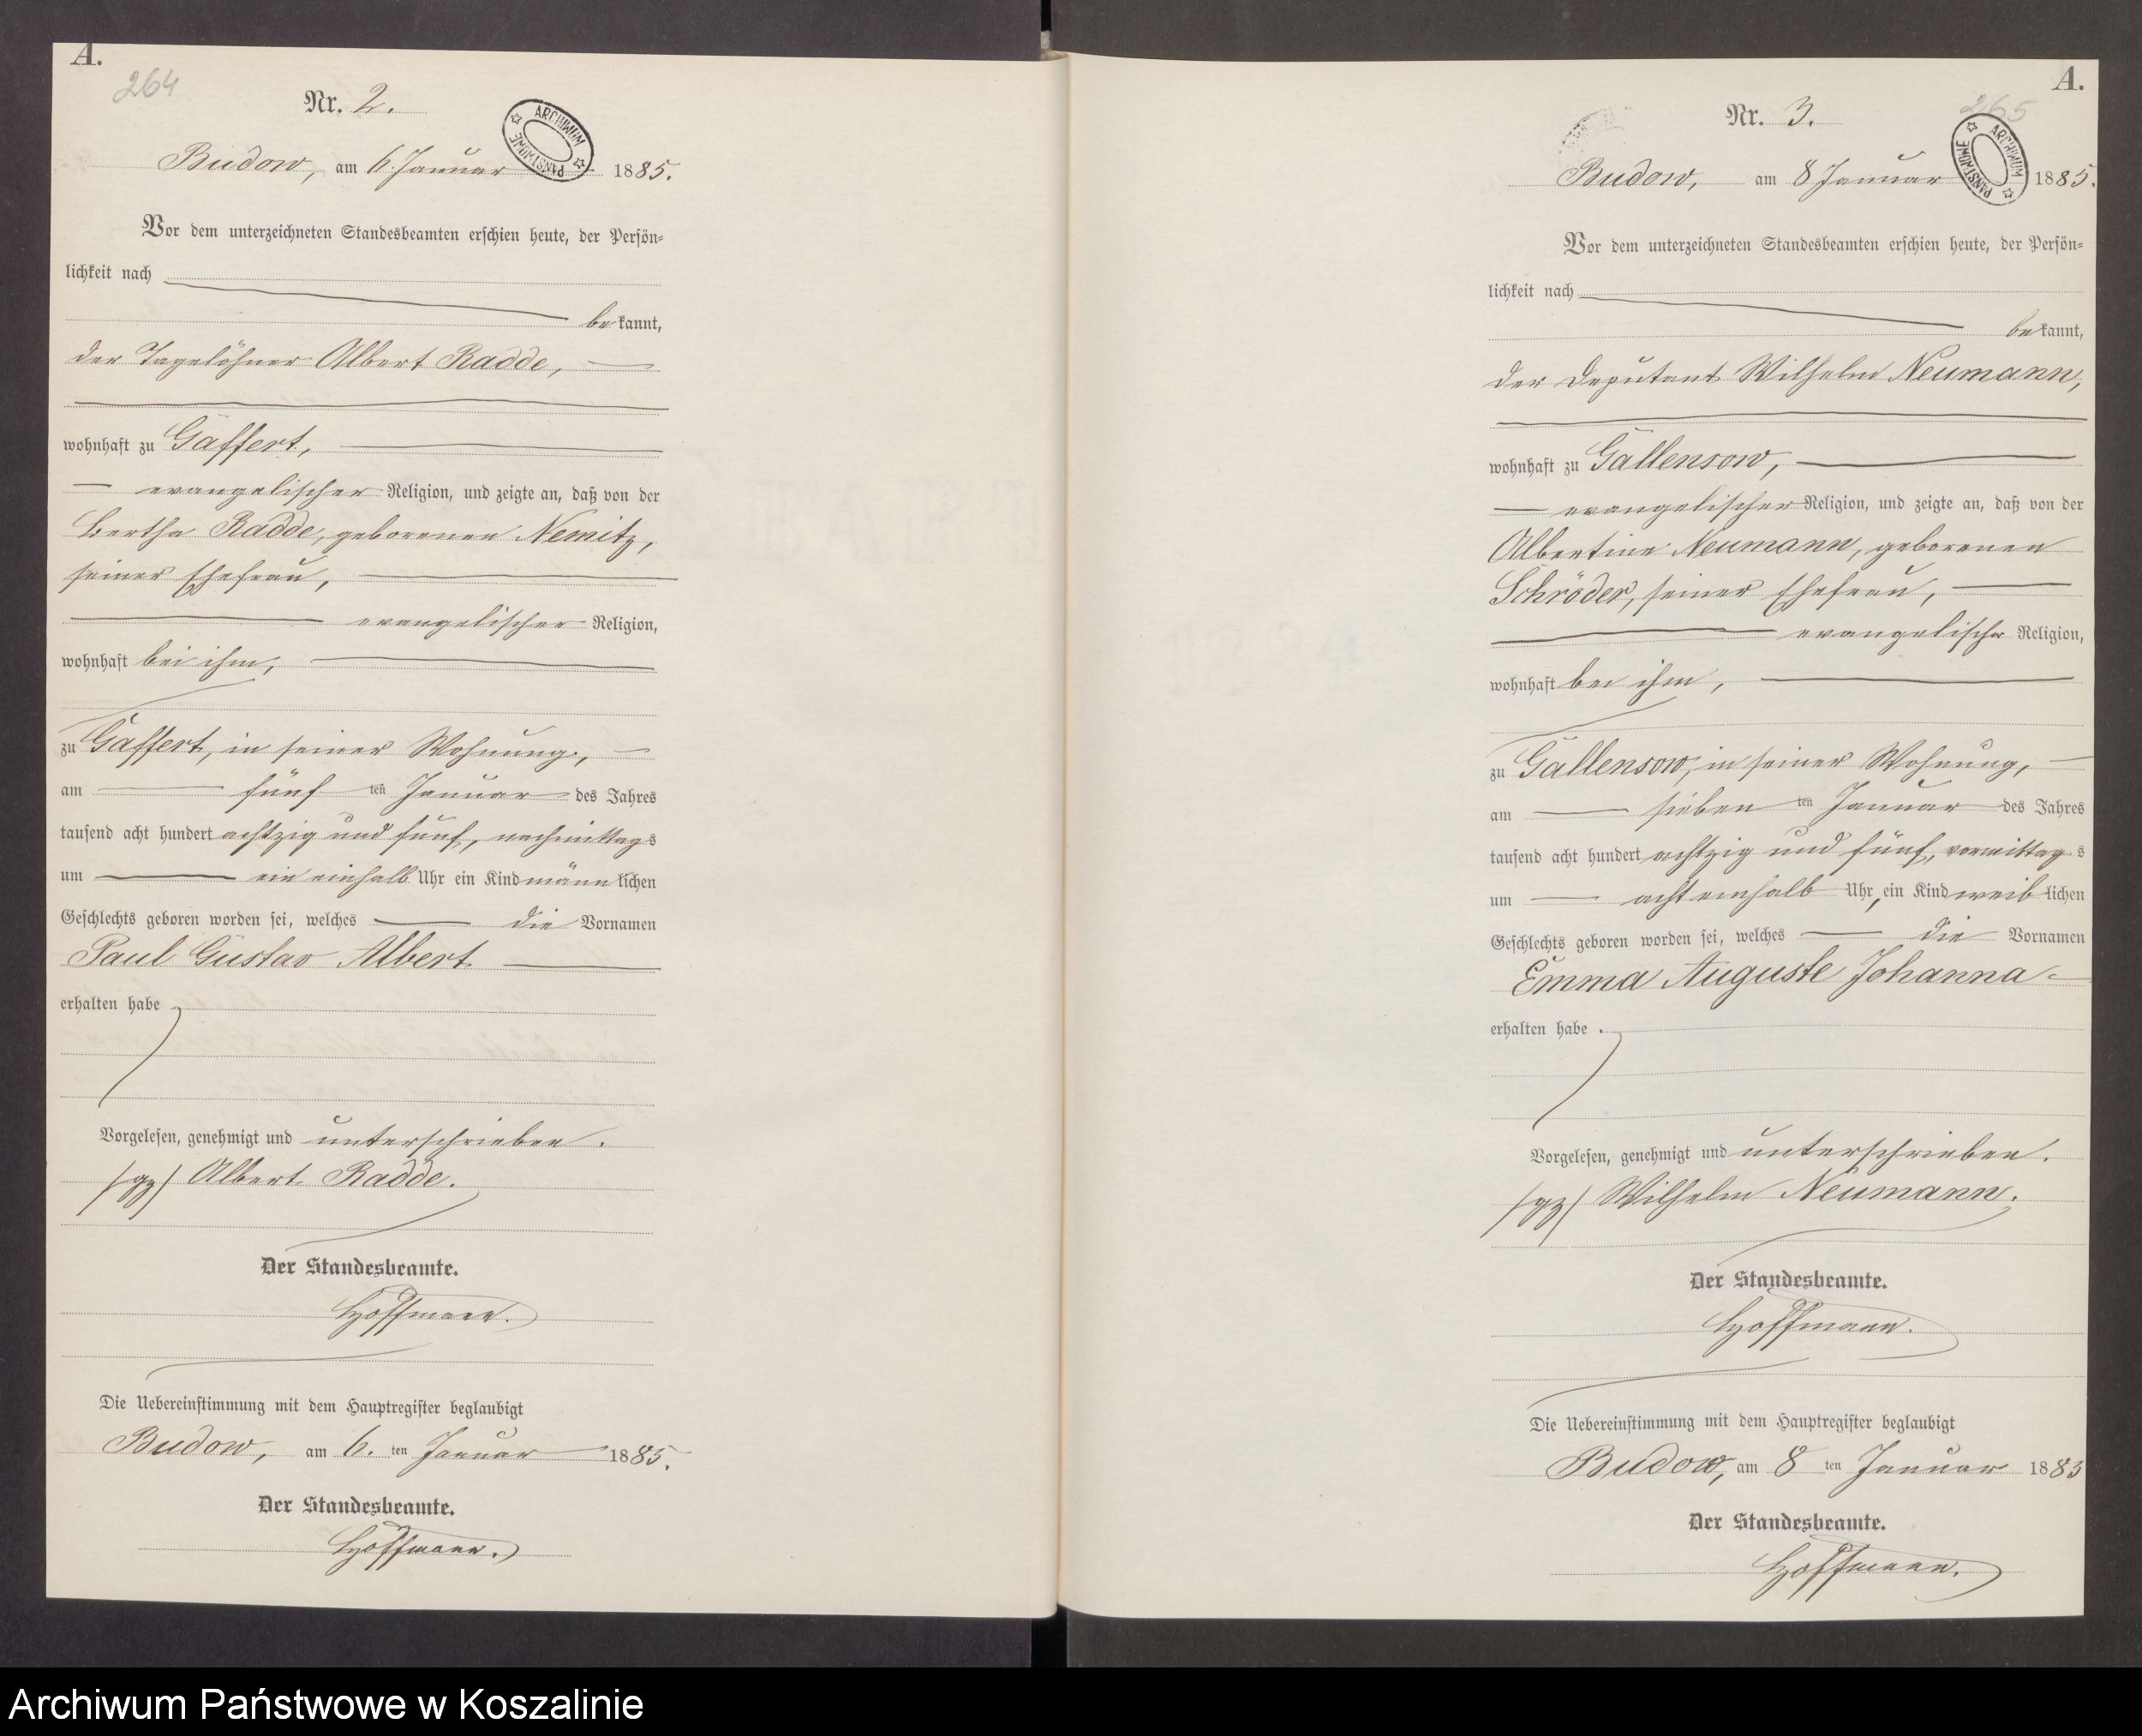 A.
264
Nr. 2.
ARCHIWUM PAŃSTWOWE
Budow, am 6 Januar 1885.
Vor dem unterzeichneten Standesbeamten erschien heute, der Persön-
lichkeit nach
bekannt,
der Tagelöhner Albert Radde,
wohnhaft zu Gaffert,
evangelischer Religion, und zeigte an, daß von der
Bertha Radde, geborenen Nemitz,
seiner Ehefrau,
evangelischer Religion,
wohnhaft bei ihm,
zu Gaffert, in seiner Wohnung,
am fünf ten Januar des Jahres
tausend acht hundert achtzig und fünf, nachmittags
um ein einhalb Uhr ein Kind männlichen
Geschlechts geboren worden sei, welches die Vornamen
Paul Gustav Albert
erhalten habe
Vorgelesen, genehmigt und unterschrieben.
/gz/ Albert Radde.
Der Standesbeamte.
Hoffmann.
Die Uebereinstimmung mit dem Hauptregister beglaubigt
Budow, am 6. ten Januar 1885.
Der Standesbeamte.
Hoffmann.
A.
265
Nr. 3.
ARCHIWUM PAŃSTWOWE
Budow, am 8 Januar 1885.
Vor dem unterzeichneten Standesbeamten erschien heute, der Persön-
lichkeit nach
bekannt,
der Deputant Wilhelm Neumann,
wohnhaft zu Gallensow,
evangelischer Religion, und zeigte an, daß von der
Albertine Neumann, geborenen
Schröder, seiner Ehefrau,
evangelischer Religion,
wohnhaft bei ihm,
zu Gallensow, in seiner Wohnung,
am sieben ten Januar des Jahres
tausend acht hundert achtzig und fünf, vormittags
um acht einhalb Uhr, ein Kind weiblichen
Geschlechts geboren worden sei, welches die Vornamen
Emma Auguste Johanna
erhalten habe.
Vorgelesen, genehmigt und unterschrieben.
/gz/ Wilhelm Neumann.
Der Standesbeamte.
Hoffmann.
Die Uebereinstimmung mit dem Hauptregister beglaubigt
Budow, am 8 ten Januar 1885
Der Standesbeamte.
Hoffmann.
Archiwum Państwowe w Koszalinie